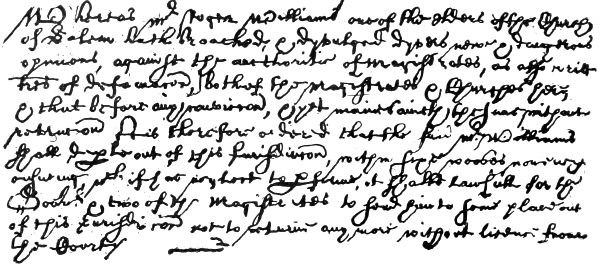 Whereas Mr Roger Williams one of the elders of the Church
of Salem hath broached & dyvulged dyvers newe & dangerous
opinions, against the aucthoritie of magistrates, as also writt
lres of defamacon, both of the magistrates & Churches here,
& that before any conviccon, & yet maintaineth the same without
retraccon It is therefore ordered that the said Mr Williams
shall depte out of this Jurisdiccon within sixe weekes nowe nexte
ensueing wch if hee neglect to pforme, it shalbe lawfull for the
Govr & two of the magistrates to send him to some place out
of this Jurisdiccon not to returne any more without licence from
the Court